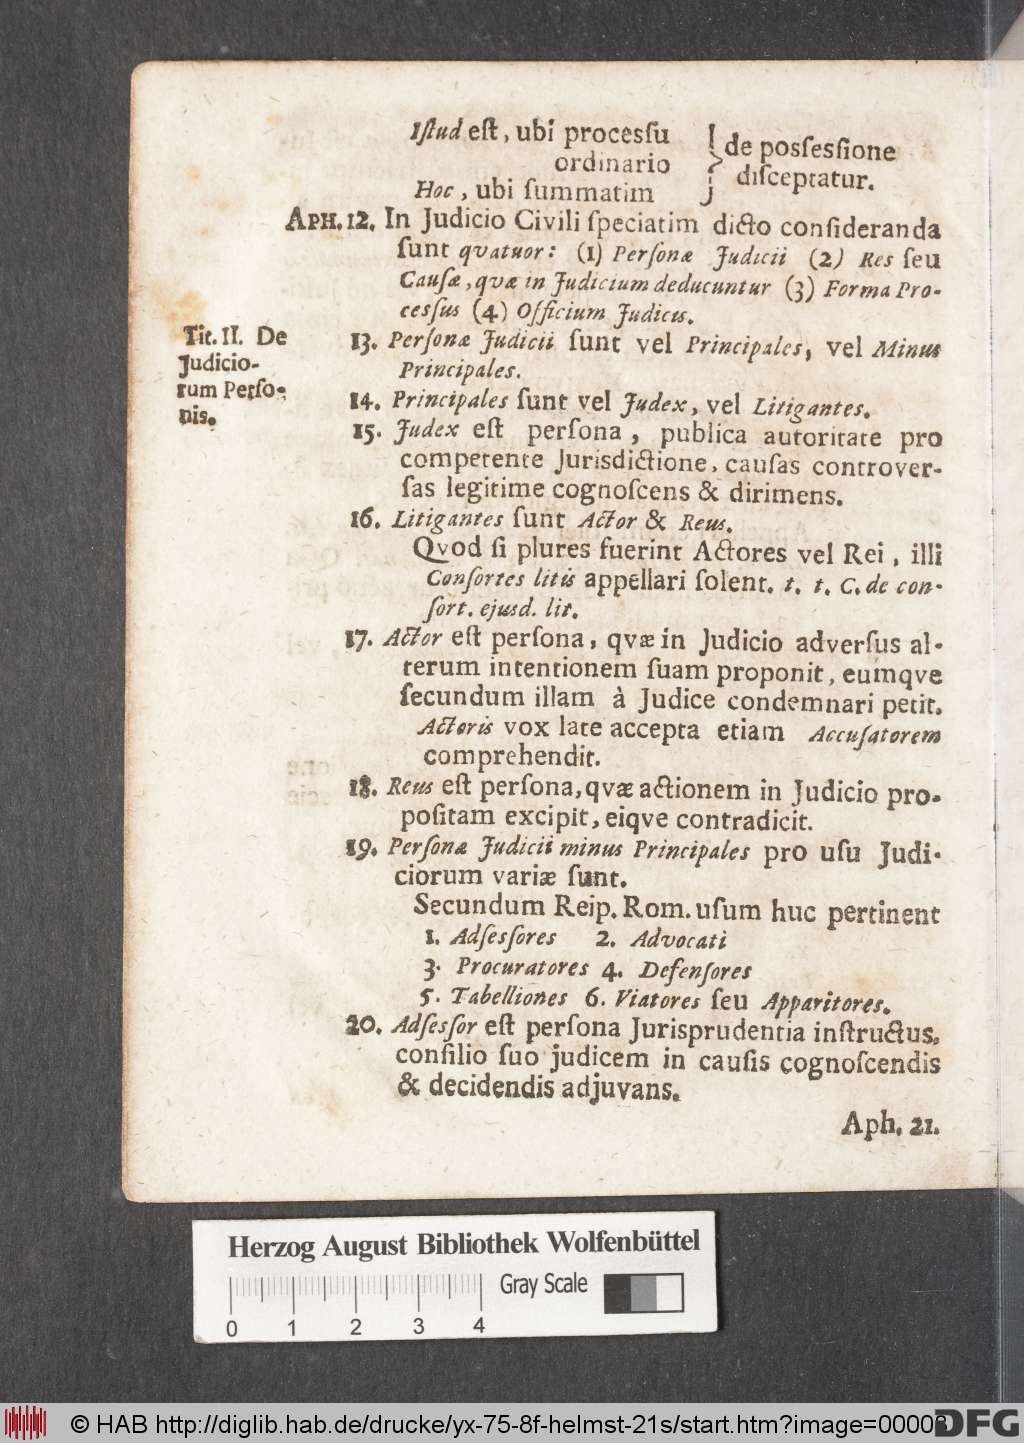 Iſtud eſt, ubi proceſſu
ordinario
Hoc, ubi ſummatim
} de poſſeſſione
diſceptatur.
APH. 12. In Judicio Civili ſpeciatim dicto conſideranda
ſunt qvatuor: (1) Perſonæ Judicii (2) Res ſeu
Cauſæ, qvæ in Judicium deducuntur (3) Forma Pro-
ceſſus (4) Officium Judicis.
Tit. II. De
Judicio-
rum Perſo-
nis.
13. Perſonæ Judicii ſunt vel Principales, vel Minus
Principales.
14. Principales ſunt vel Judex, vel Litigantes.
15. Judex eſt perſona, publica autoritate pro
competente Jurisdictione, cauſas controver-
ſas legitime cognoſcens & dirimens.
16. Litigantes ſunt Actor & Reus.
Qvod ſi plures fuerint Actores vel Rei, illi
Conſortes litis appellari ſolent. t. t. C. de con-
ſort. ejusd. lit.
17. Actor eſt perſona, qvæ in Judicio adverſus al-
terum intentionem ſuam proponit, eumqve
ſecundum illam à Judice condemnari petit.
Actoris vox late accepta etiam Accuſatorem
comprehendit.
18. Reus eſt perſona, qvæ actionem in Judicio pro-
poſitam excipit, eiqve contradicit.
19. Perſonæ Judicii minus Principales pro uſu Judi-
ciorum variæ ſunt.
Secundum Reip. Rom. uſum huc pertinent
1. Adſeſſores 2. Advocati
3. Procuratores 4. Defenſores
5. Tabelliones 6. Viatores ſeu Apparitores.
20. Adſeſſor eſt perſona Jurisprudentia inſtructus,
conſilio ſuo judicem in cauſis cognoſcendis
& decidendis adjuvans.
Aph. 21.
Herzog August Bibliothek Wolfenbüttel
Gray Scale
0 1 2 3 4
© HAB http://diglib.hab.de/drucke/yx-75-8f-helmst-21s/start.htm?image=00008
DFG